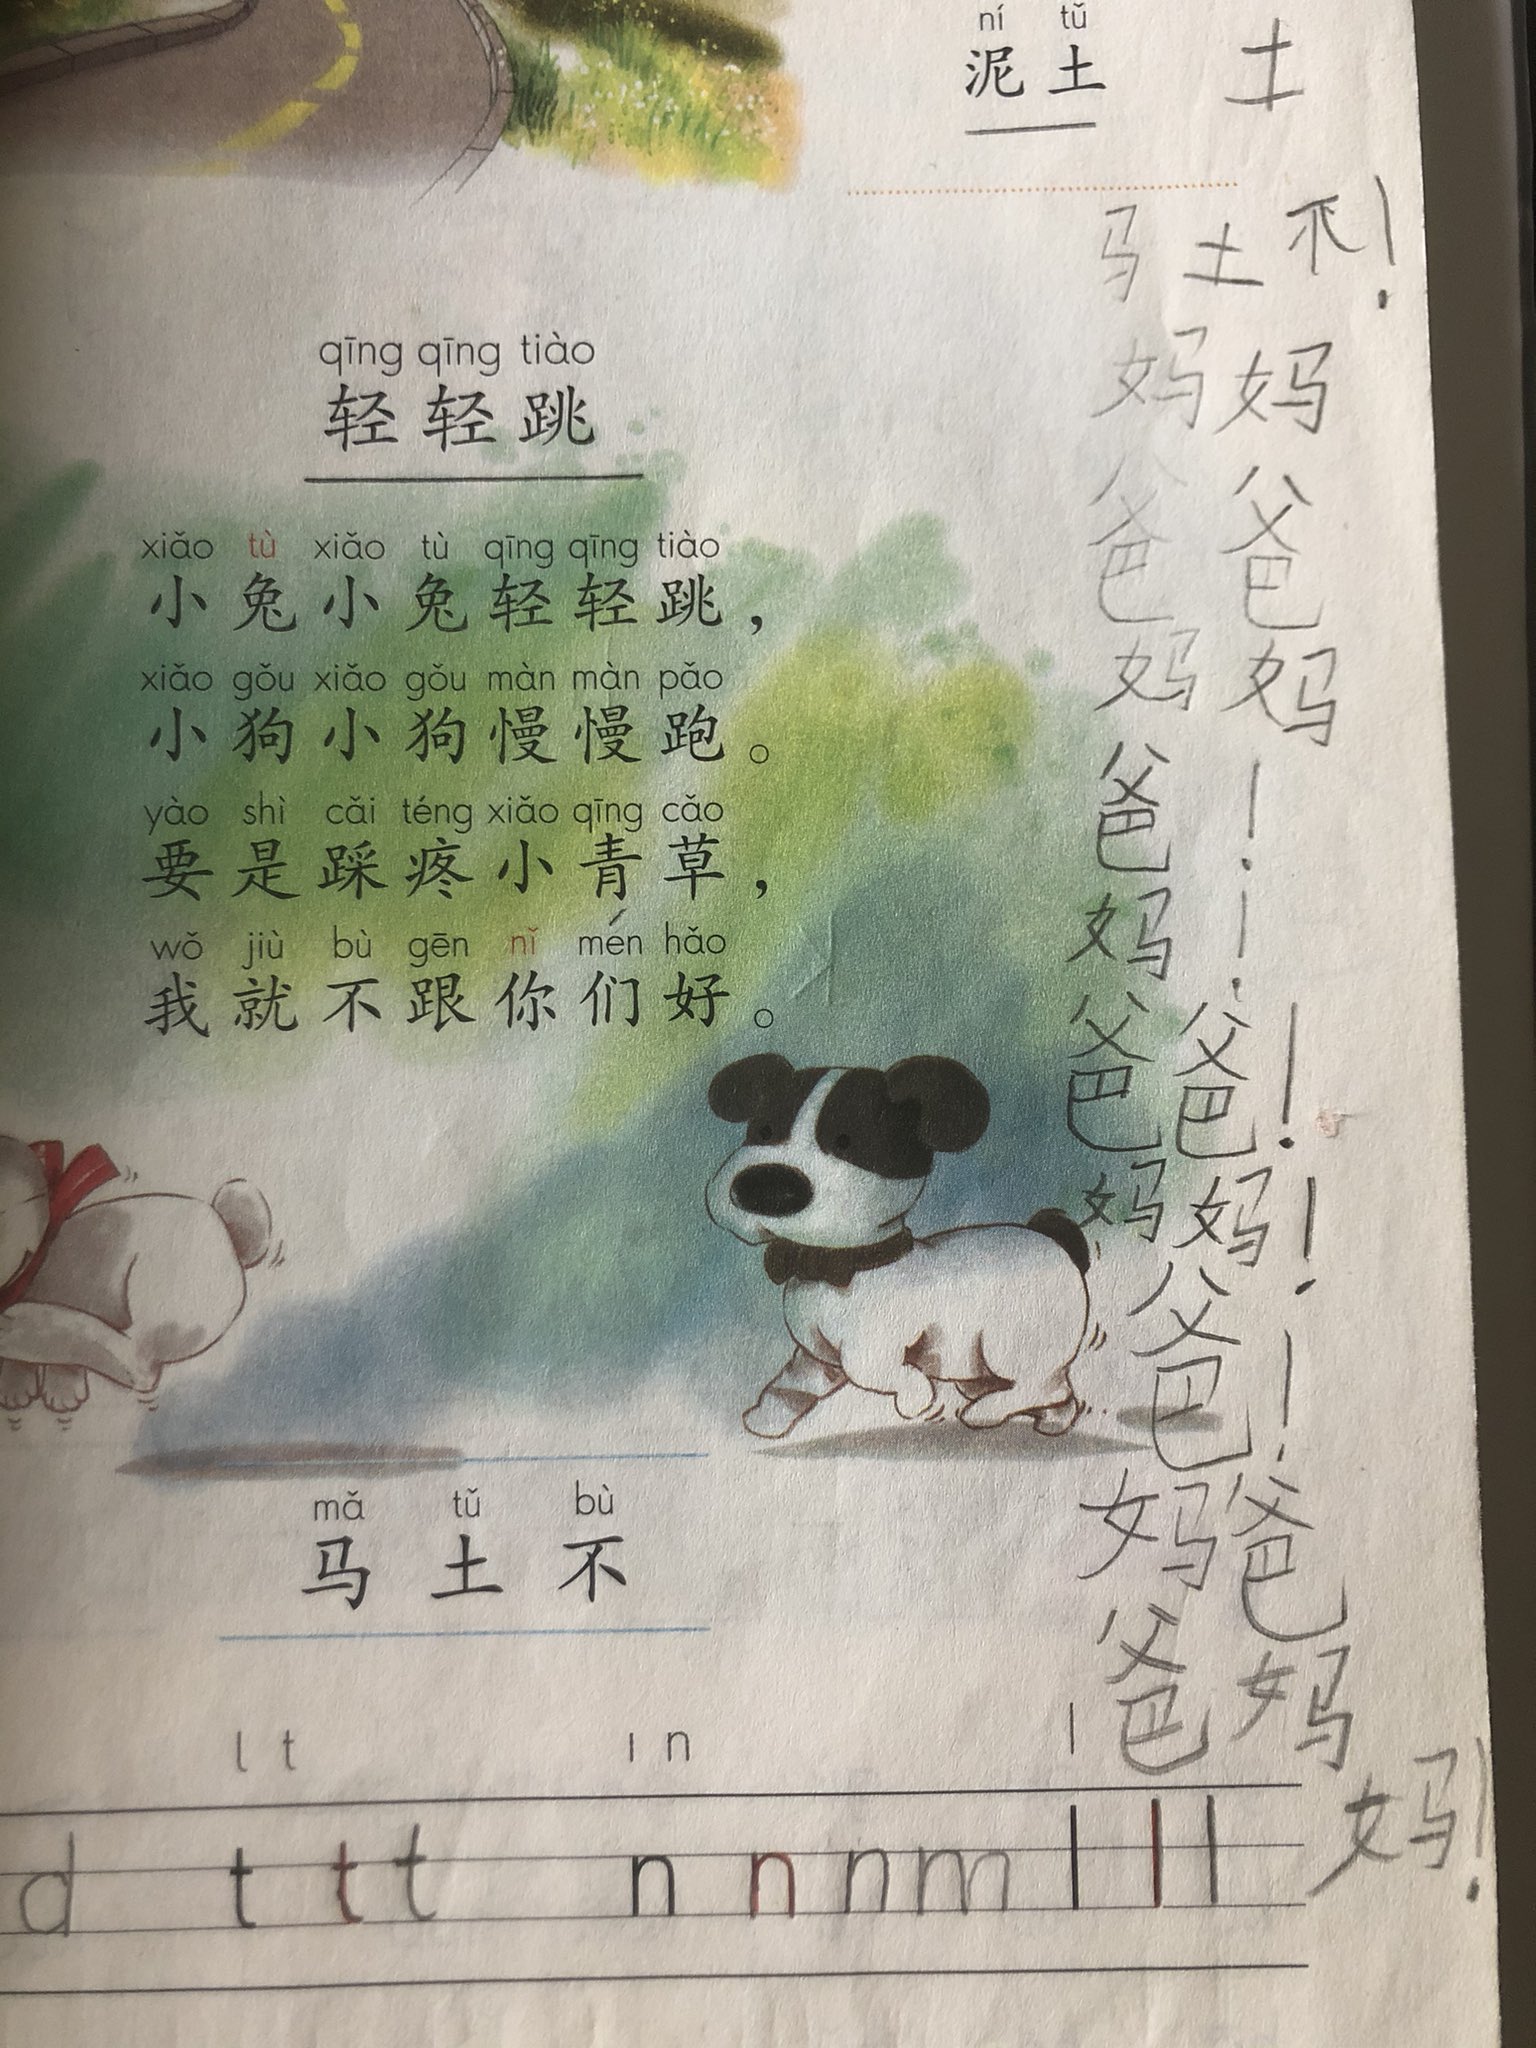 ní tǔ
泥土 土
马土不!
qīng qīng tiào
轻轻跳
xiǎo tù xiǎo tù qīng qīng tiào
小兔小兔轻轻跳，
xiǎo gǒu xiǎo gǒu màn màn pǎo
小狗小狗慢慢跑。
yào shì cǎi téng xiǎo qīng cǎo
要是踩疼小青草，
wǒ jiù bù gēn nǐ mén hǎo
我就不跟你们好。
妈妈
爸爸
妈妈
爸!
妈!
爸爸!
妈妈!
爸!
妈爸
爸妈
妈!
mǎ tǔ bù
马土不
l t ı n l
d t t t n n n m l l l